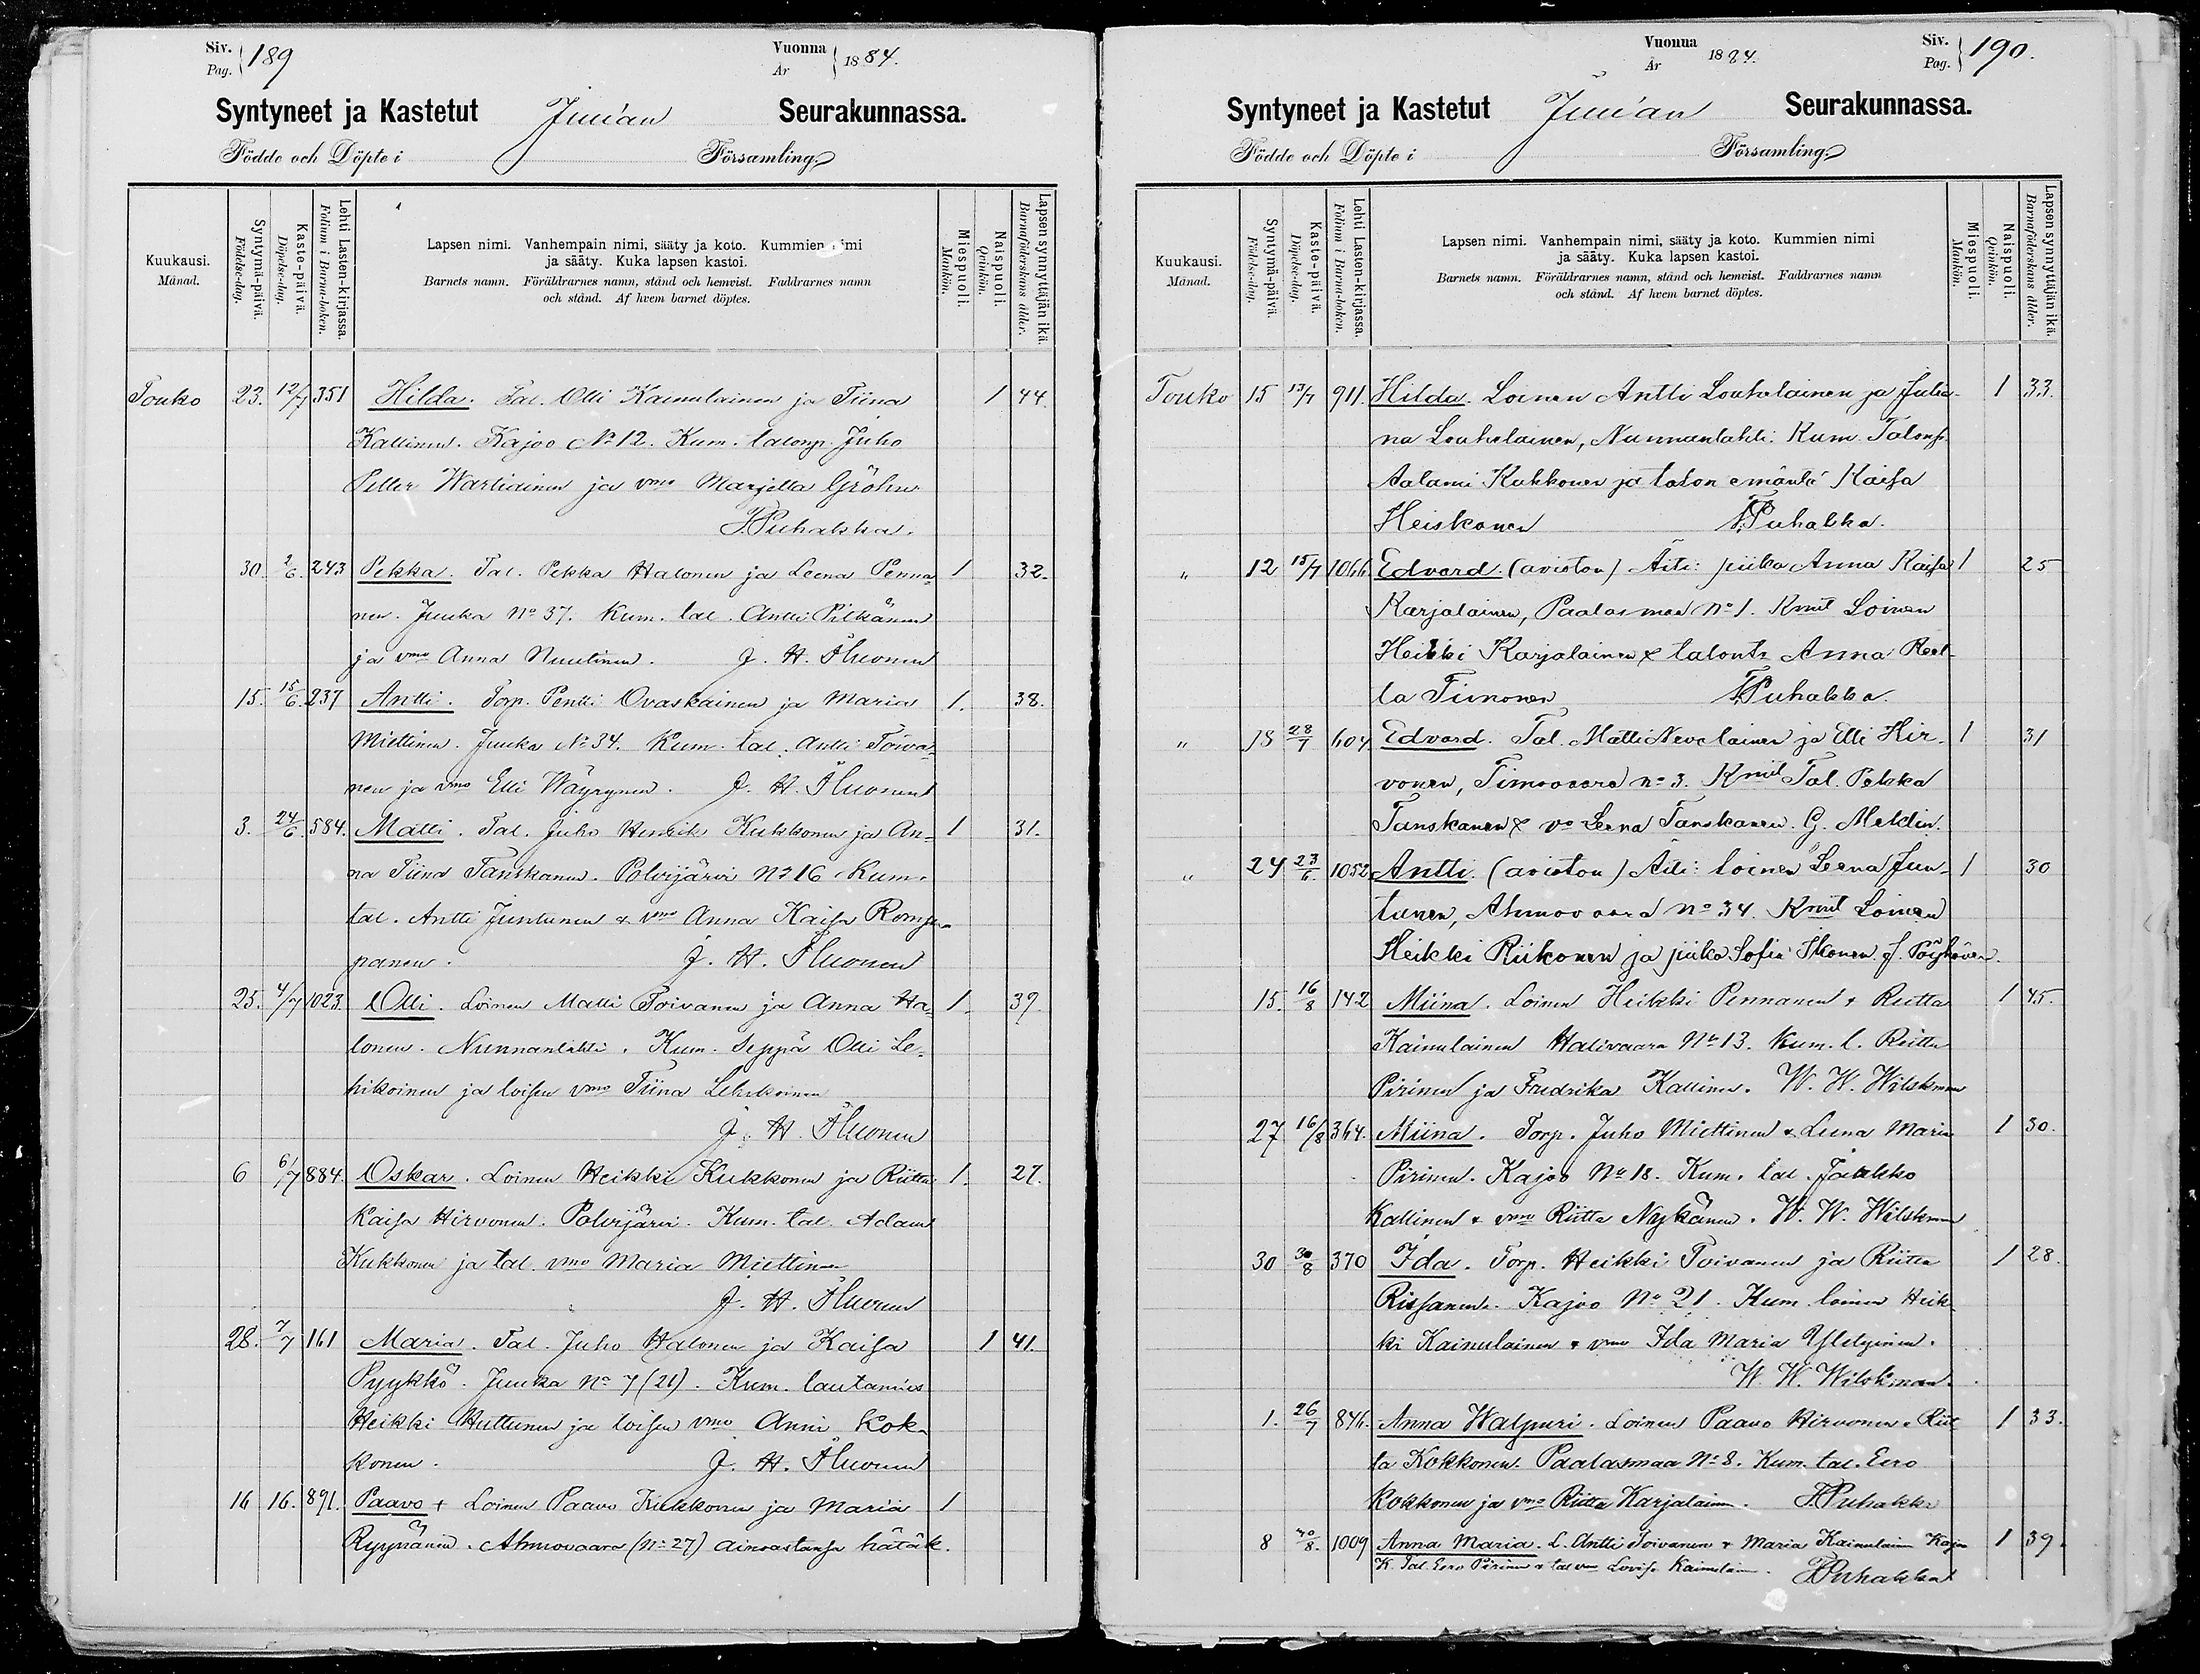 Siv. Pag. 189
Vuonna År 1884.
Syntyneet ja Kastetut Juuan Seurakunnassa.
Födde och Döpte i Församling.
Kuukausi. Månad.
Syntymä-päivä. Födelse-dag.
Kaste-päivä. Döpelse-dag.
Lehti Lasten-kirjassa. Folium i Barna-boken.
Lapsen nimi. Vanhempain nimi, sääty ja koto. Kummien nimi
ja sääty. Kuka lapsen kastoi.
Barnets namn. Föräldrarnes namn, stånd och hemvist. Faddrarnes namn
och stånd. Af hvem barnet döptes.
Miespuoli. Mankön.
Naispuoli. Qvinkön.
Lapsen synnyttäjän ikä. Barnaföderskans ålder.
Touko 23. 12/7 351 Hilda. Tal. Olli Kainulainen ja Tiina 1 44.
Kallinen. Kajoo No 12. Kum. talonp. Juho
Petter Wartiainen ja vmo Marjetta Gröhn
Puhakka.
30. 2/6. 243 Pekka. Tal. Pekka Halonen ja Leena Penna- 1 32.
nen. Juuka No 37. Kum. tal. Antti Pitkänen
ja vmo Anna Nuutinen. J. H. Ihuonen
15. 15/6. 237 Antti. Torp. Pentti Ovaskainen ja Maria 1. 38.
Miettinen. Juuka No 34. Kum. tal. Antti Toiva-
nen ja vmo Elli Wäyrynen. J. H. Ihuonen
3. 24/6 584. Matti. Tal. Juho Henrik Kukkonen ja An- 1 31.
na Tiina Tanskanen. Polvijärvi No 16 Kum.
tal. Antti Juntunen & vmo Anna Kaisa Romp-
panen. J. H. Ihuonen
25. 4/7 1023. Olli. Loinen Matti Toivanen ja Anna Ha- 1. 39.
lonen. Nunnanlahti. Kum. Seppä Olli Le-
hikoinen ja loisen vmo Tiina Lehikoinen
J. H. Ihuonen
6 6/7 884. Oskar. Loinen Heikki Kukkonen ja Riitta 1. 27.
Kaisa Hirvonen. Polvijärvi. Kum. tal. Adam
Kukkonen ja tal. vmo Maria Miettinen
J. H. Ihuonen
28. 7/7 161 Maria. Tal. Juho Halonen ja Kaisa 1 41.
Pyykkö. Juuka No 7 (21). Kum. lautamies
Heikki Huttunen ja loisen vmo Anni Kok-
konen. J. H. Ihuonen
16 16. 891. Paavo + Loinen Paavo Kukkonen ja Maria 1
Ryynänen. Ahmovaara (No 27) ainoastansa hätäk.
Vuonna År 1884.
Siv. Pag. 190.
Syntyneet ja Kastetut Juuan Seurakunnassa.
Födde och Döpte i Församling.
Kuukausi. Månad.
Syntymä-päivä. Födelse-dag.
Kaste-päivä. Döpelse-dag.
Lehti Lasten-kirjassa. Folium i Barna-boken.
Lapsen nimi. Vanhempain nimi, sääty ja koto. Kummien nimi
ja sääty. Kuka lapsen kastoi.
Barnets namn. Föräldrarnes namn, stånd och hemvist. Faddrarnes namn
och stånd. Af hvem barnet döptes.
Miespuoli. Mankön.
Naispuoli. Qvinkön.
Lapsen synnyttäjän ikä. Barnaföderskans ålder.
Touko 15 13/7 911. Hilda. Loinen Antti Louhelainen ja Julia- 1 33.
na Louhelainen, Nunnanlahti: Kum. Talonp.
Aalami Kukkonen ja talon emäntä Kaisa
Heiskanen Puhakka.
" 12 15/7 1066 Edvard. (avioton) Äiti: piika Anna Kaisa 1 25
Karjalainen, Paalasmaa No 1. Kmit Loinen
Heikki Karjalainen & talont. Anna Reet-
ta Timonen Puhakka.
" 18 28/7 604 Edvard. Tal. Matti Nevalainen ja Elli Hir- 1 31
vonen, Timovaara no 3. Kmit Tal. Pekka
Tanskanen & vo Leena Tanskanen. G. Meldin.
" 24 23/6. 1052 Antti. (avioton) Äiti: loinen Leena Jun- 1 30
tunen, Ahmovaara No 34. Kmit Loinen
Heikki Riikonen ja piika Sofia Ikonen. J. Pöyhönen.
15. 16/8 142 Miina. Loinen Heikki Pennanen & Riitta 1 45.
Kainulainen Halivaara No 13. Kum. l. Reitta
Pirinen ja Fredrika Kallinen. W. W. Wilskman
27 16/8 364. Miina. Torp. Juho Miettinen & Leena Maria 1 30.
Pirinen. Kajoo No 18. Kum. tal. Jaakko
Kallinen & vmo Riitta Nykänen. W. W. Wilskman
30 30/8 370 Ida. Torp. Heikki Toivanen ja Riitta 1 28.
Rissanen. Kajoo No 21. Kum. loinen Heik-
ki Kainulainen & vmo Ida Maria Yletyinen.
W. W. Wilskman.
1. 26/7 846. Anna Walpuri. Loinen Paavo Hirvonen & Riit- 1 33.
ta Kokkonen. Paalasmaa No 8. Kum. tal. Eero
Kokkonen ja vmo Riitta Karjalainen. Puhakka
8 30/8. 1009 Anna Maria. L. Antti Toivanen & Maria Kainulainen Kajoo 1 39.
K. Tal. Eero Pirinen & tal vmo Lovisa Kainulainen. Puhakka